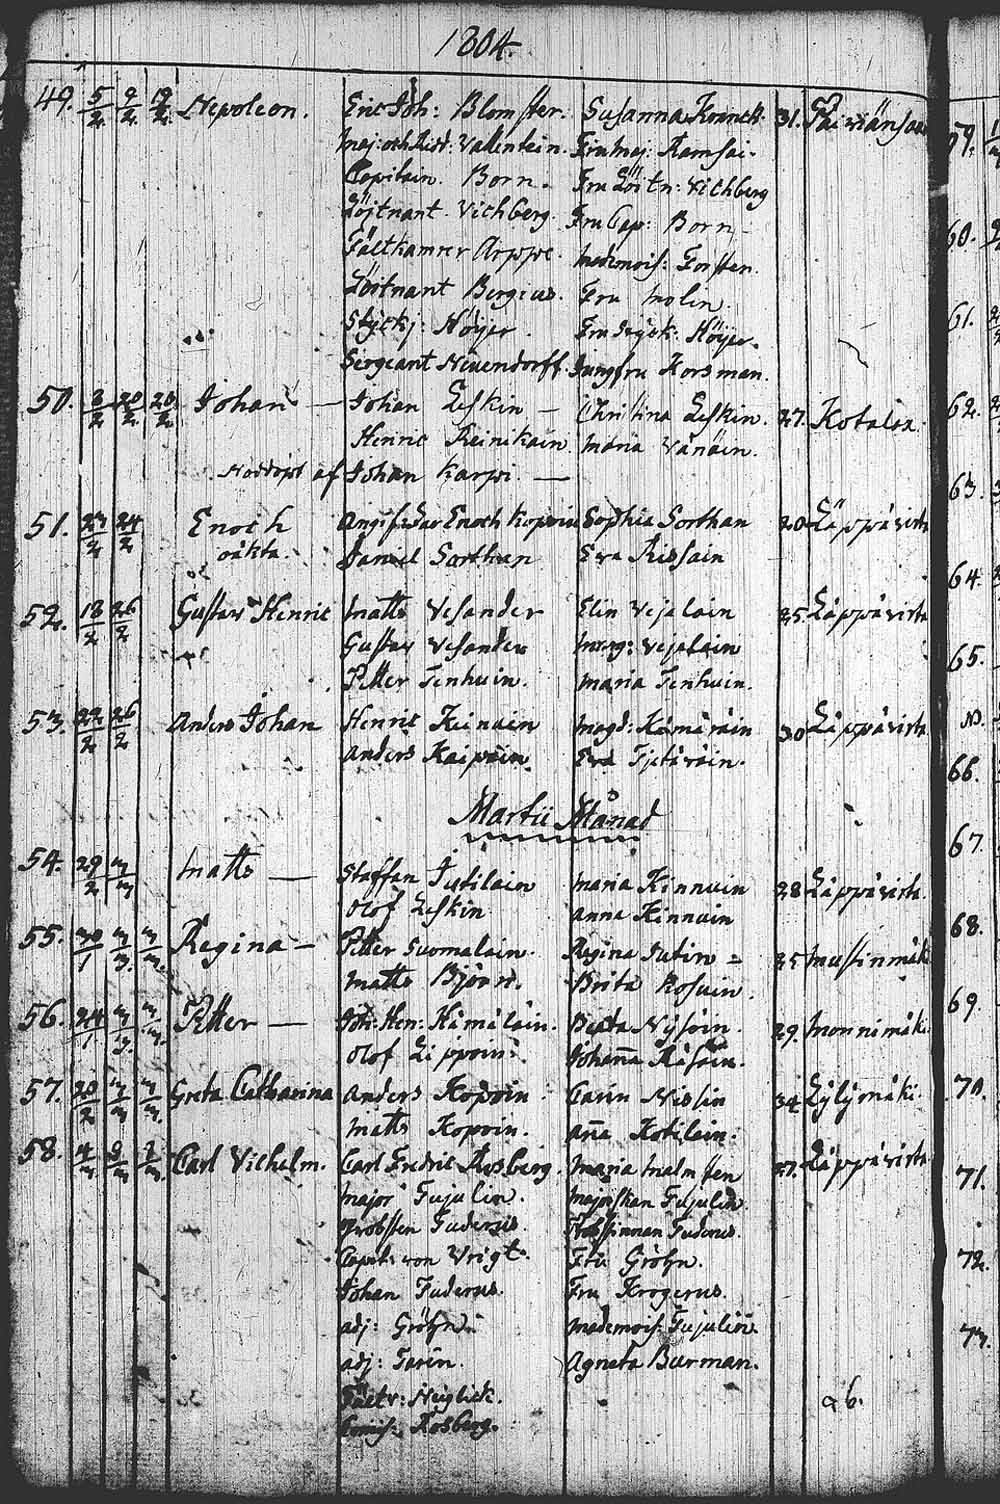 1804.
49. 5/2 9/2 19/2 Nepoleon. Eric Joh: Blomster. Susanna Konnck. 31.
Maj: och Rid: Vallentein. Fru Maj: Ramsai.
Capitain. Born. Fru Löitn: Vichberg
Löjtnant. Vichberg. Fru Cap: Born
Fältkamrer Arppe. Mademois: Forsten.
Löitnant Bergius. Fru Molin.
Styckj: Höijer. Fru Styck: Höijer.
Sergeant Neuendorff. Jungfru Horsman.
50. 2/2 20/2 20/2 Johan — Johan Leskin — Christina Leskin. 27. Kotalax.
Henric Reinikain. Maria Vänäin.
Nöddöpt af Johan Karpi. —
51. 23/2 24/2 Enoch Angifvdar Enoch Kopoin Sophia Sorthan 20 Läppävirta
oäkta. Daniel Sorthan Eva Rissain
52. 18/2 26/2 Gustav Henric Matts Vesander Elin Vejalain 25. Läppävirta
Gustav Vesander Marg: Vejalain
Petter Tenhuin. Maria Tenhuin.
53. 22/2 26/2 Anders Johan Henric Keinäin Magd: Hämäräin 30 Läppävirta
Anders Kaipain. Eva
Martii Månad
54. 29/2 3/3 Matts — Staffan Jutilain Maria Kinnuin 28 Läppävirta.
Olof Leskin Anna Kinnuin
55. 30/1 3/3. 3/3. Regina — Petter Suomalain. Regina Jutin = 25 Mustinmäki
Matts Björn. Brita Rosuin.
56. 24/1 3/3. 3/3. Petter — Joh: Hen: Hämäläin. Beata Nysöin. 29. Monnimäki.
Olof Lippoin: Johanna Räsäin.
57. 20/2 3/3 3/3. Greta Catharina Anders Kopoin Carin Nissin 34 Lylymäki.
Matts Kopoin. Anna Kokilain:
58. 4/3 8/3 7/3. Carl Vilhelm. Carl Fredric Rosberg. Maria Malmsten 37. Läppävirta
Major Fujulin. Majorskan Fujulin
Probsten Fuderus. Probstinnan Fuderus.
Capit: von Vrigt. Fru Gröhn.
Johan Fuderus. Fru Krogerus.
adj: Gröhn. Mademois: Fujulin.
adj: Forin. Agneta Burman.
Fältv: Neiglick.
Comis: Rosberg.
59.
60.
61.
62.
63.
64.
65.
66.
67.
68.
69.
70.
71.
72.
73.